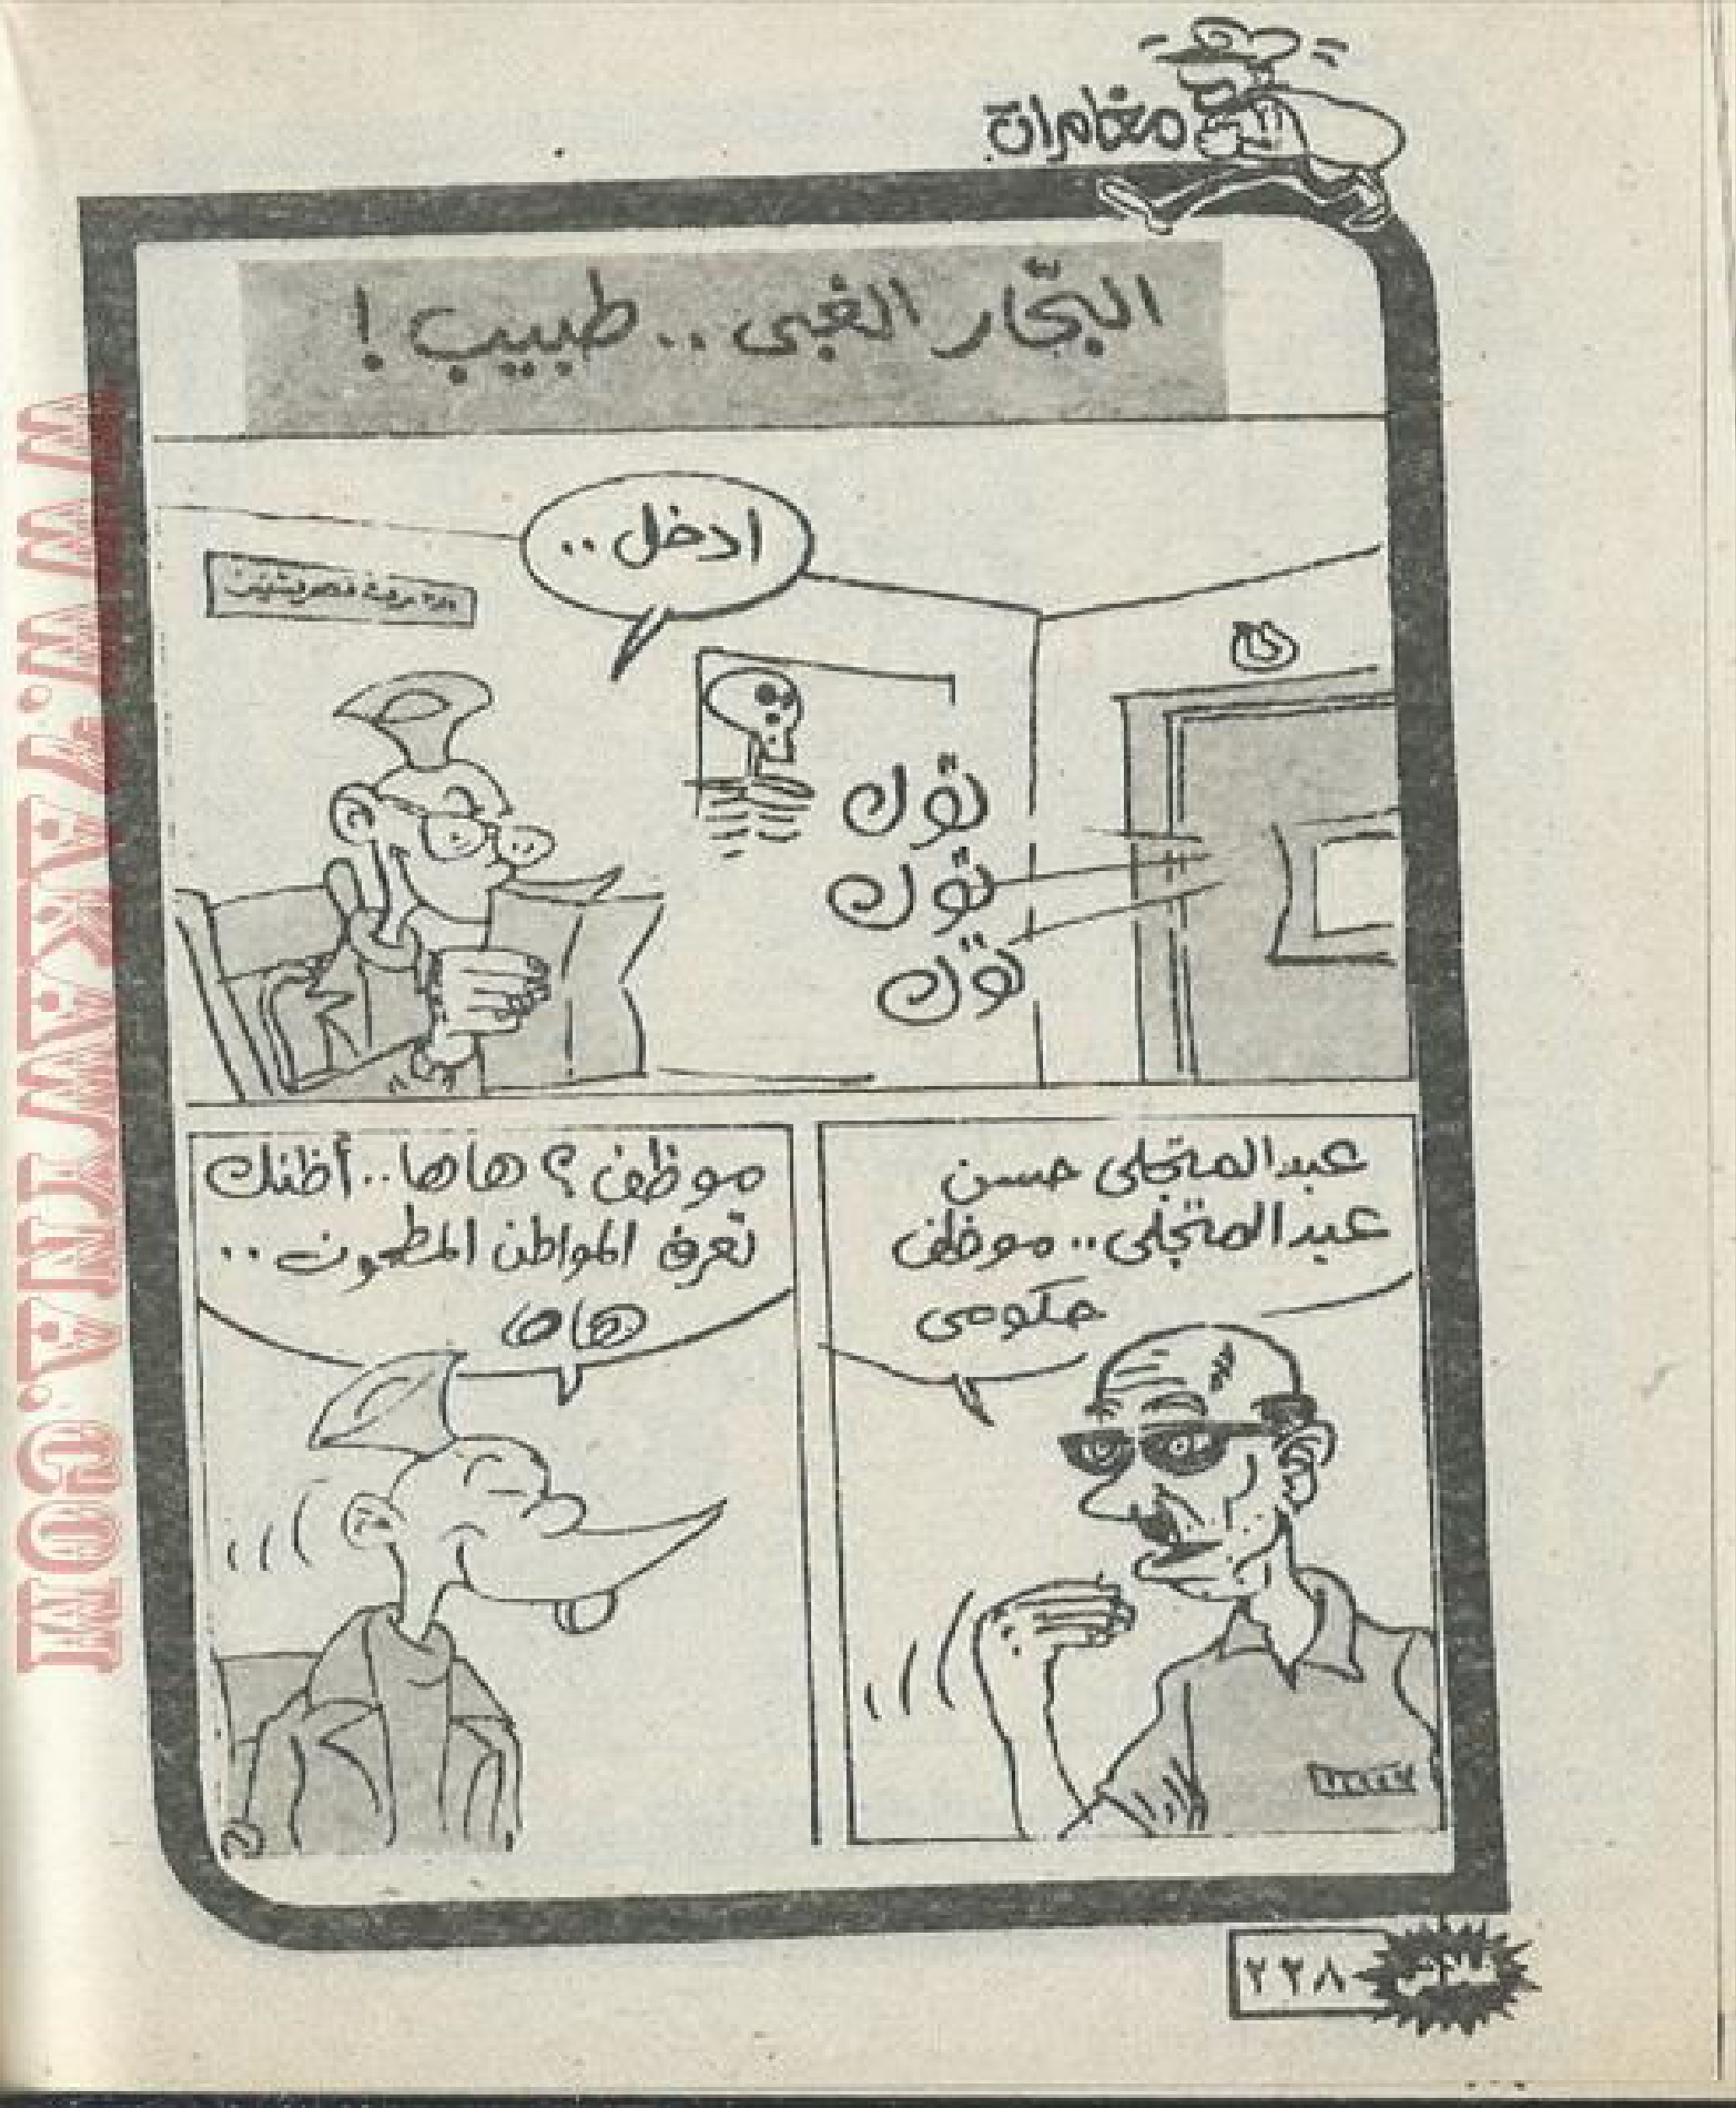 مغامرات
البحّار الغبى .. طبيب !
ادخل ..
توك
توك
توك
عبد المتجلى حسن
عبد المتجلى .. موظف
حكومى
موظف ؟ هاها .. أظنك
تعرف المواطن المطحون ..
هاها
٢٢٨
WWW.7AKAWYINA.COM